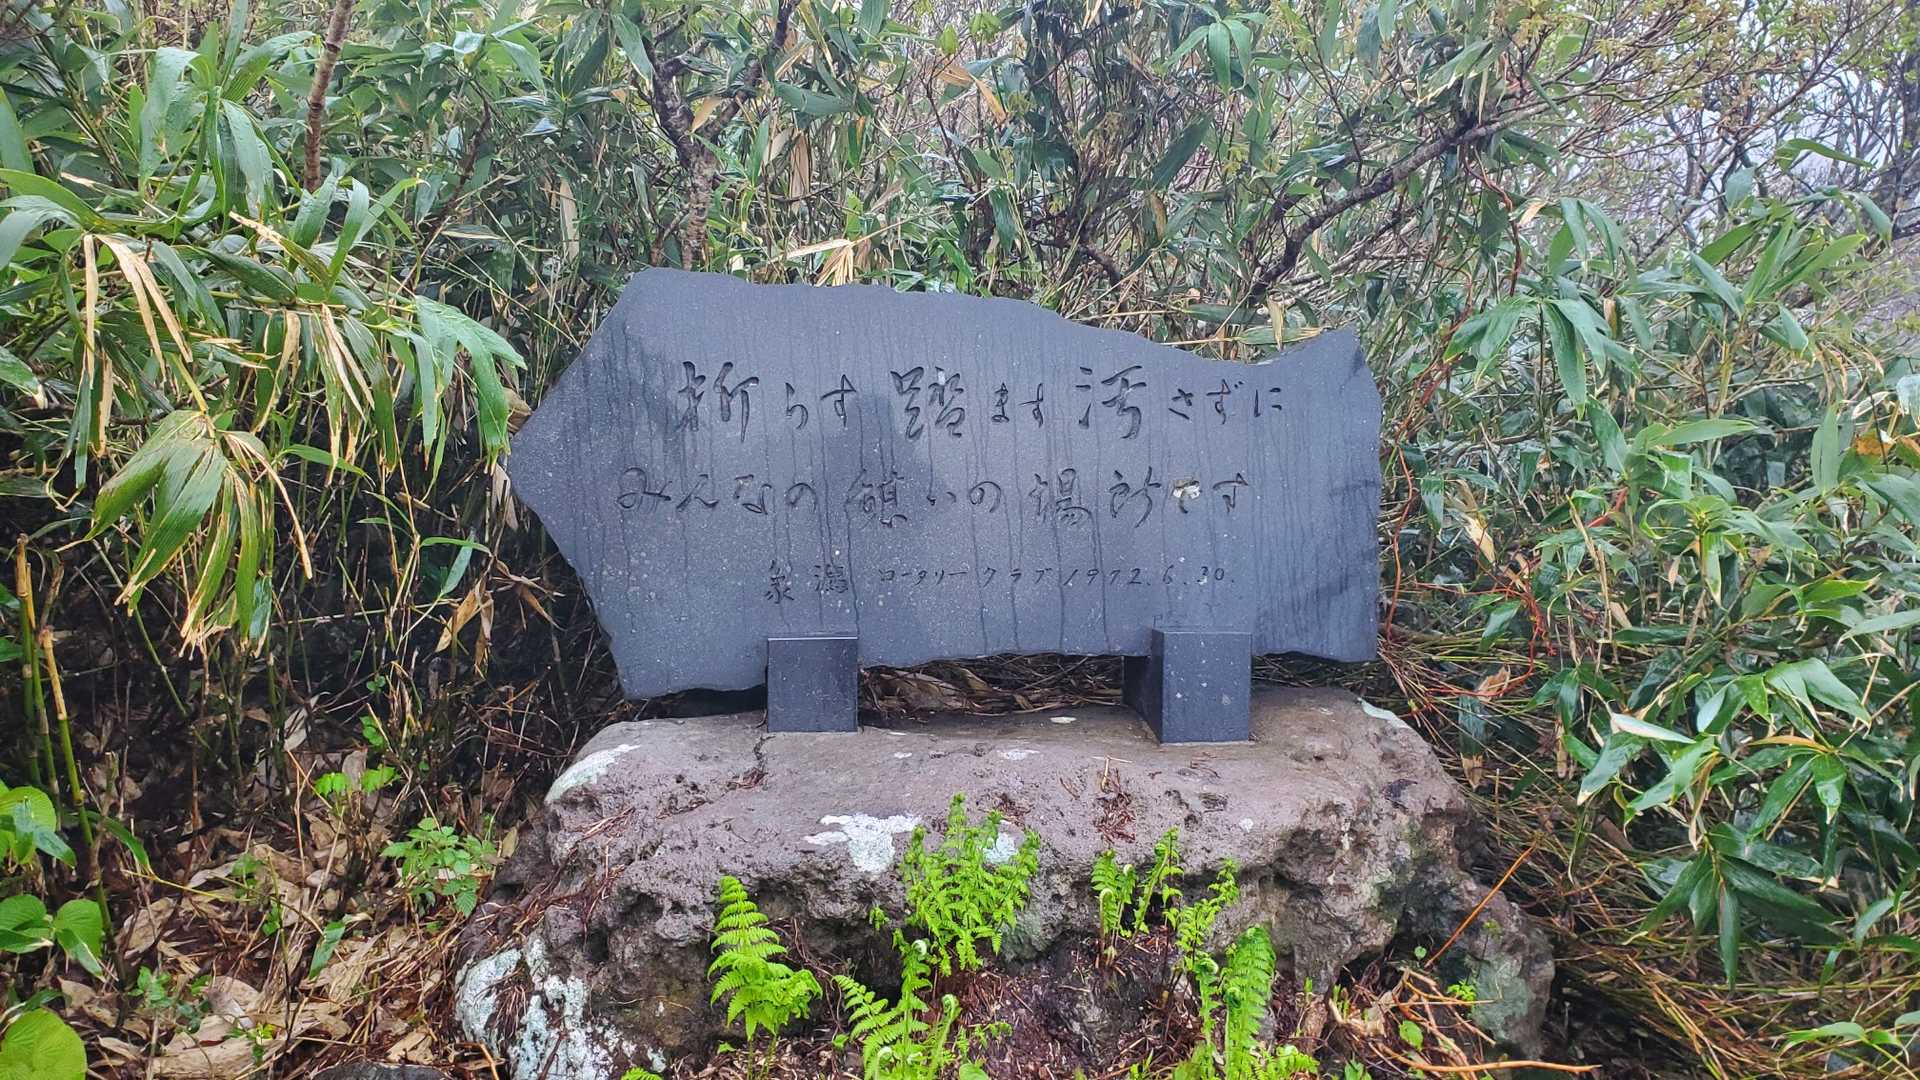 折らす踏ます汚さずに
みんなの憩いの場所です
象潟ロータリークラブ 1972.6.30.